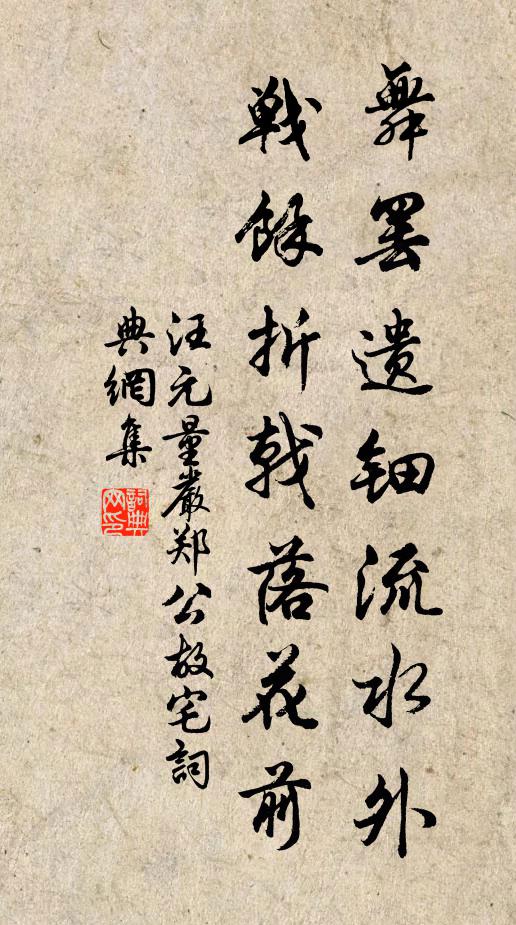 舞罢遗钿流水外
戦餘折戟落花前
汪元量嚴郑公故宅詞
典網集
詞典网印